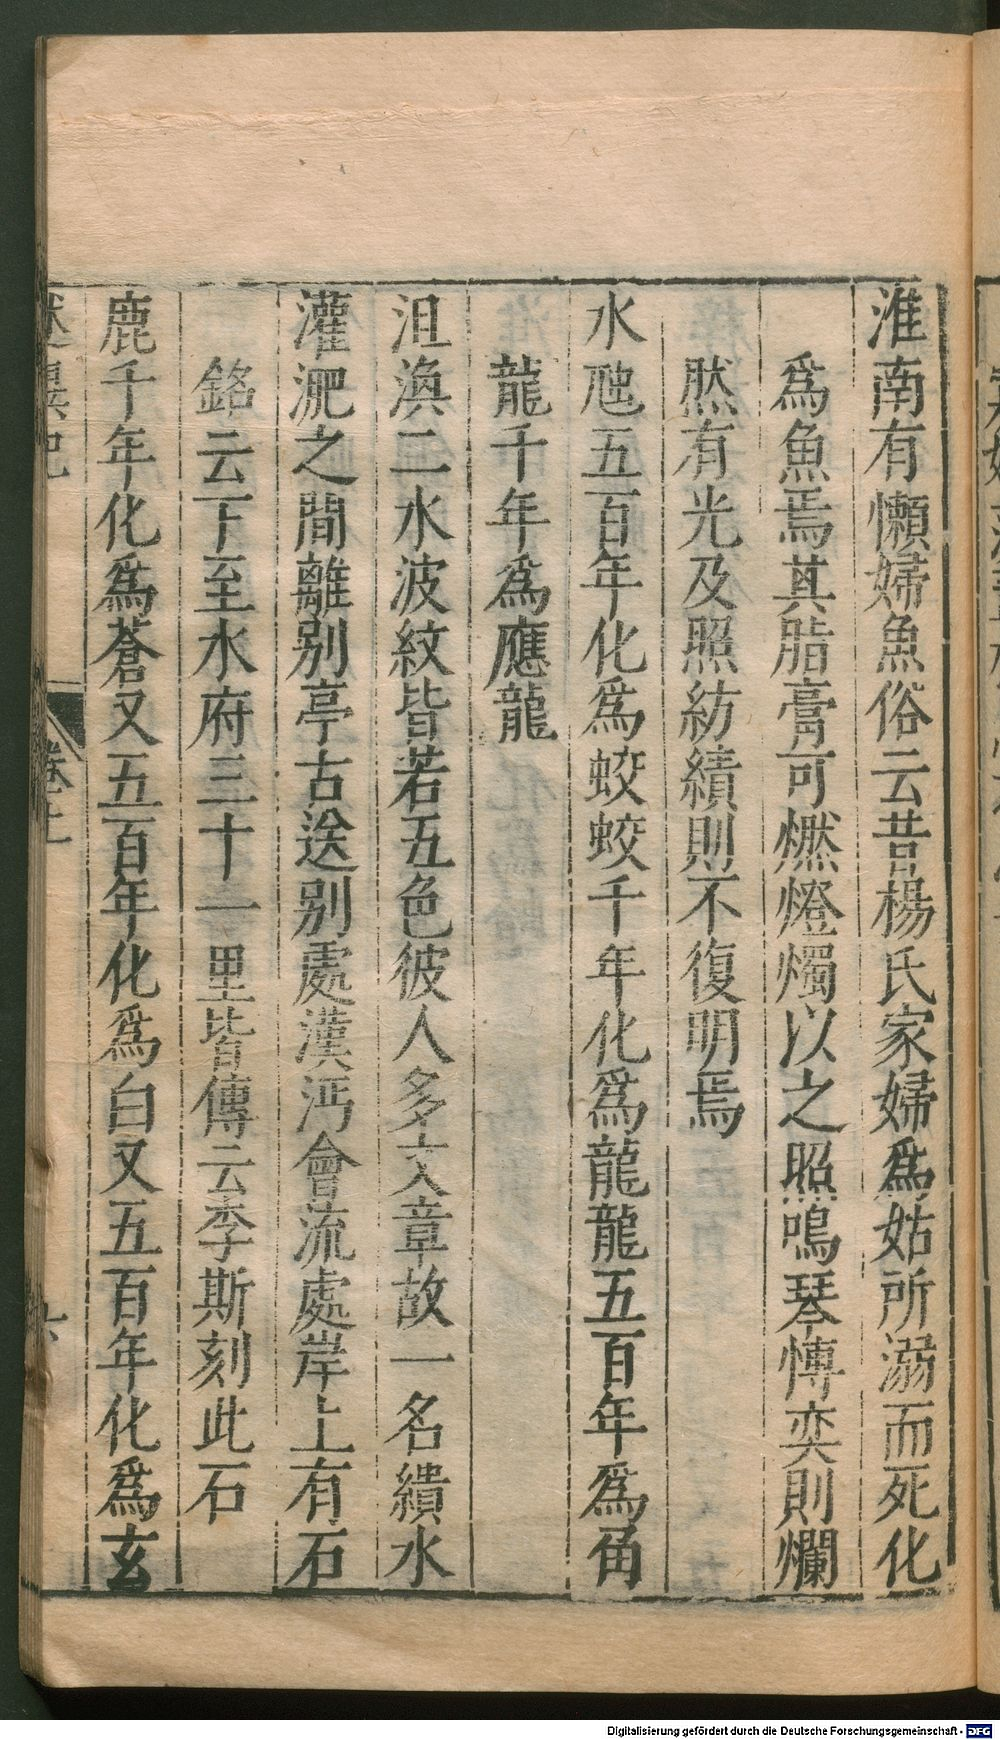 淮南有懶婦魚俗云昔楊氏家婦爲姑所溺而死化
爲魚焉其脂膏可燃燈燭以之照鳴琴博奕則爛
然有光及照紡績則不復明焉
水虺五百年化爲蛟蛟千年化爲龍龍五百年爲角
龍千年爲應龍
沮渙二水波紋皆若五色彼人多文章故一名繢水
灌淝之間離别亭古送别處漢沔會流處岸上有石
銘云下至水府三十一里皆傳云李斯刻此石
鹿千年化爲蒼又五百年化爲白又五百年化爲玄
述異記
卷上
六
Digitalisierung gefördert durch die Deutsche Forschungsgemeinschaft - DFG